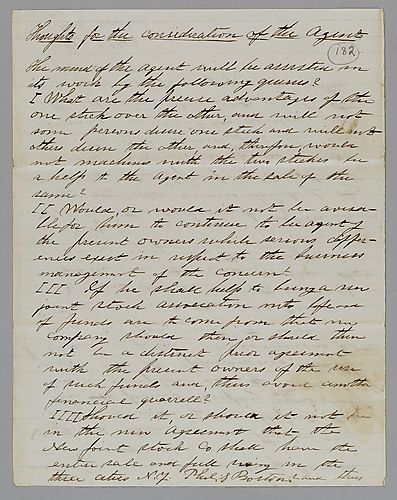 Thoughts for the consideration of the Agent
182
The mind of the agent will be assisted in
its work by the following queries?
I What are the precise advantages of the
one stich over the other, and will not
some persons desire one stich and will not
others desire the other and, therefore would
not machines with the two stiches be
a help to the agent in the sale of the
same?
II Would, or would it not be advisa-
ble for him to continue to be agent of
the present owners while serious differ-
ences exist in respect to the business
management of the concern?
III If he shall help to bring a new
joint stock association into life and
if funds are to come from that new
company should then, or should there
not be a distinct prior agreement
with the present owners of the use
of such funds and, thus avoid another
financial quarrell?
IIII Should it or should it not be
in the new agreement that the
New joint stock Co shall have the
entire sale and full sway in the
three cities N.Y. Phil. & Boston? and thus